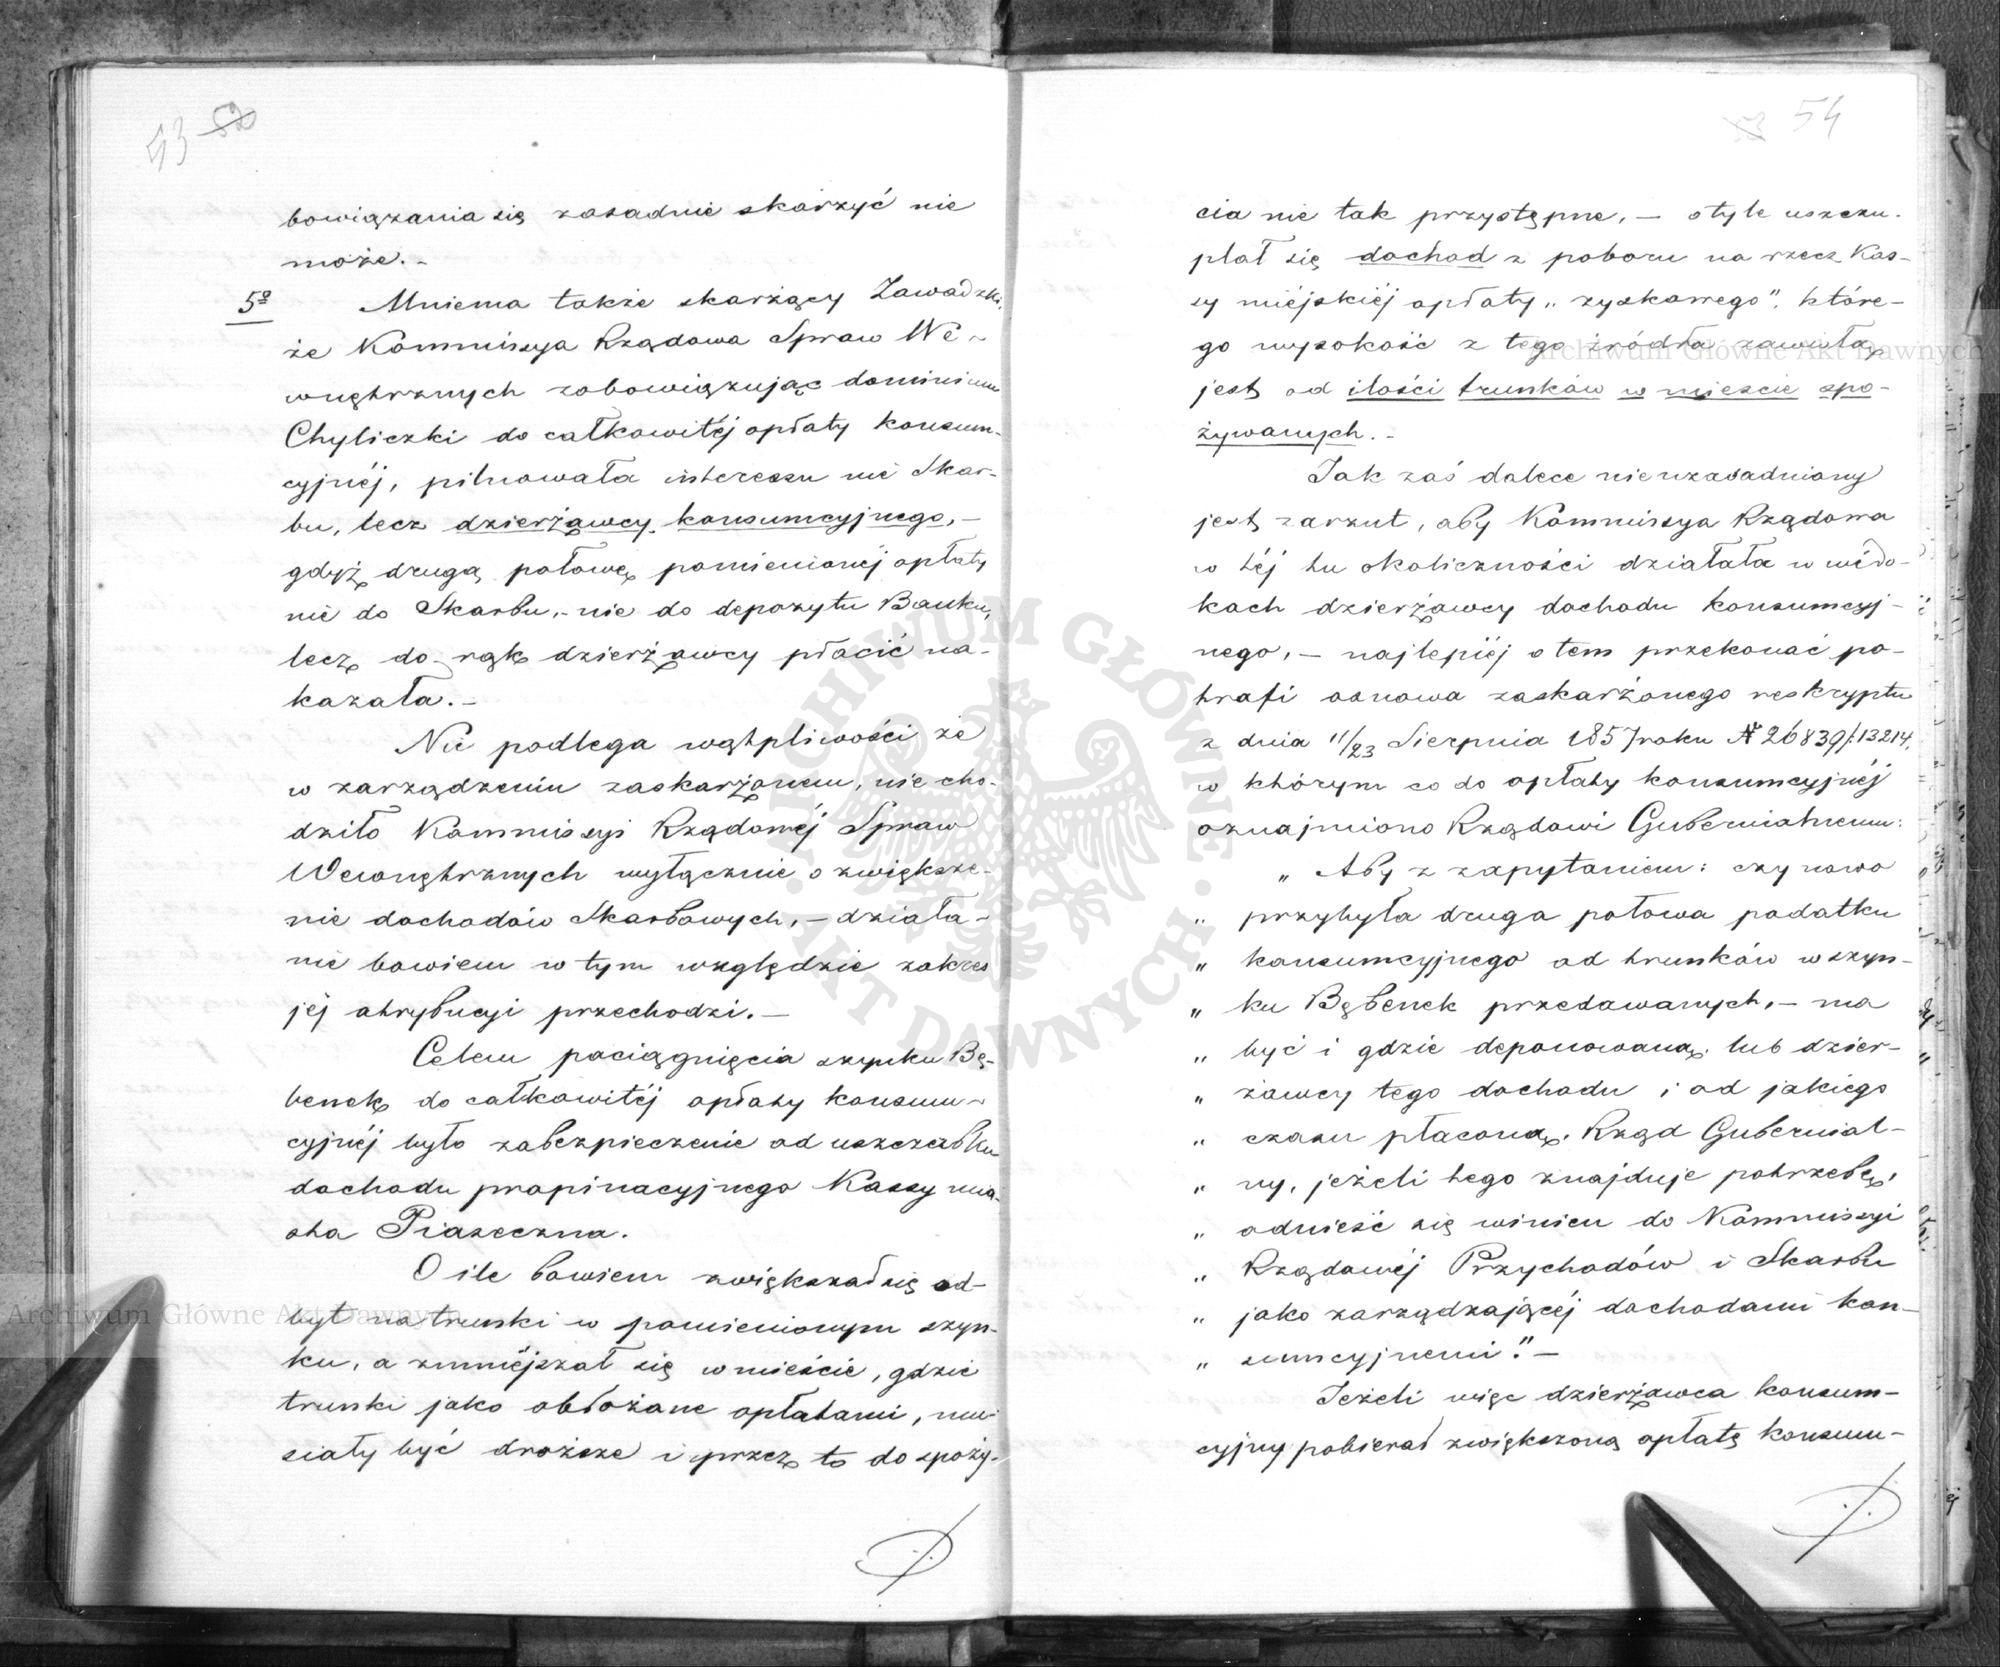 53 52
bowiązania się zasadnie skarżyć nie
może.-
5o Mniema także skarżący Zawadzki,
że Kommissya Rządowa Spraw We-
wnętrznych zobowiązując dominium
Chyliczki do całkowitéj opłaty konsum-
cyjnéj, pilnowała interessu nie Skar-
bu, lecz dzierżawcy konsumcyjnego,-
gdyż drugą połowę pomienionéj opłaty
nie do Skarbu,- nie do depozytu Banku,
lecz do rąk dzierżawcy płacić na-
kazała.-
Nie podlega wątpliwości że
w zarządzeniu zaskarżonem, nie cho-
dziło Kommissyi Rządowéj Spraw
Wewnętrznych wyłącznie o zwiększe-
nie dochodów Skarbowych,- działa-
nie bowiem w tym względzie zakres
jéj atrybucyi przechodzi.-
Celem pociągnięcia szynku Bę-
benek do całkowitéj opłaty konsum-
cyjnéj było zabezpieczenie od uszczerbku
dochodu propinacyjnego Kassy mia-
sta Piaseczna.
O ile bowiem zwiększał się od-
byt na trunki w pomienionym szyn-
ku, a zmniéjszał się w mieście, gdzie
trunki jako obłożane opłatami, mu-
siały być droższe i przez to do spoży-
53 54
cia nie tak przystępne,- o tyle uszczu-
plał się dochod z poboru na rzecz Kas-
sy miéjskiéj opłaty „zyskowego”, które-
go wysokość z tego źródła zawisłą
jest od ilości trunków w mieście spo-
żywanych.-
Jak zaś dalece nieuzasadniony
jest zarzut, aby Kommissya Rządowa
w téj tu okoliczności działała w wido-
kach dzierżawcy dochodu konsumcyj-
nego,- najlepiéj o tem przekonać po-
trafi osnowa zaskarżonego reskryptu
z dnia 11/23 Sierpnia 1857 roku N 26839/13214,
w którym co do opłaty konsumcyjnéj
oznajmiono Rządowi Gubernialnemu:
„ Aby z zapytaniem: czy nowo
„ przybyła druga połowa podatku
„ konsumcyjnego od trunków w szyn-
„ ku Bębenek przedawanych,- ma
„ być i gdzie deponowaną, lub dzier-
„ żawcy tego dochodu i od jakiego
„ czasu płaconą, Rząd Gubernial-
„ ny, jeżeli tego znajduje potrzebę,
„ odnieść się winien do Kommissyi
„ Rządowéj Przychodów i Skarbu
„ jako zarządzającéj dochodami kon-
„ sumcyjnemi”.-
Jeżeli więc dzierżawca konsum-
cyjny pobierał zwiększoną opłatę konsum-
Archiwum Główne Akt Dawnych
Archiwum Główne Akt Dawnych
ARCHIWUM GŁÓWNE · AKT DAWNYCH ·